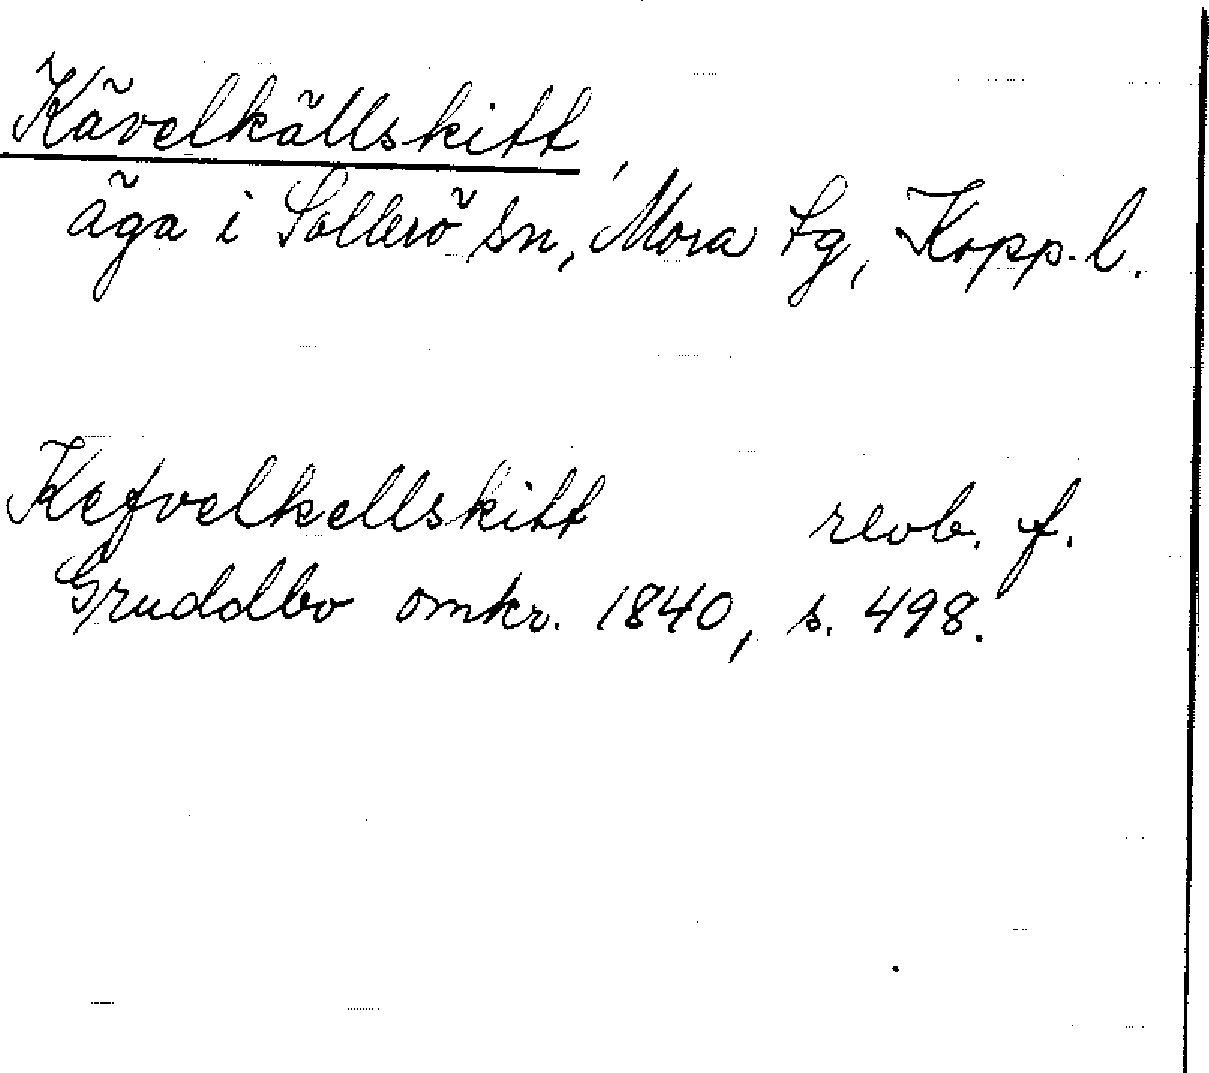 Kävelkällskitt
äga i Sollerö sn, Mora tg, Kopp. l.
Kefvelkellskitt revb. f.
Gruddbo omkr. 1840, s. 498.